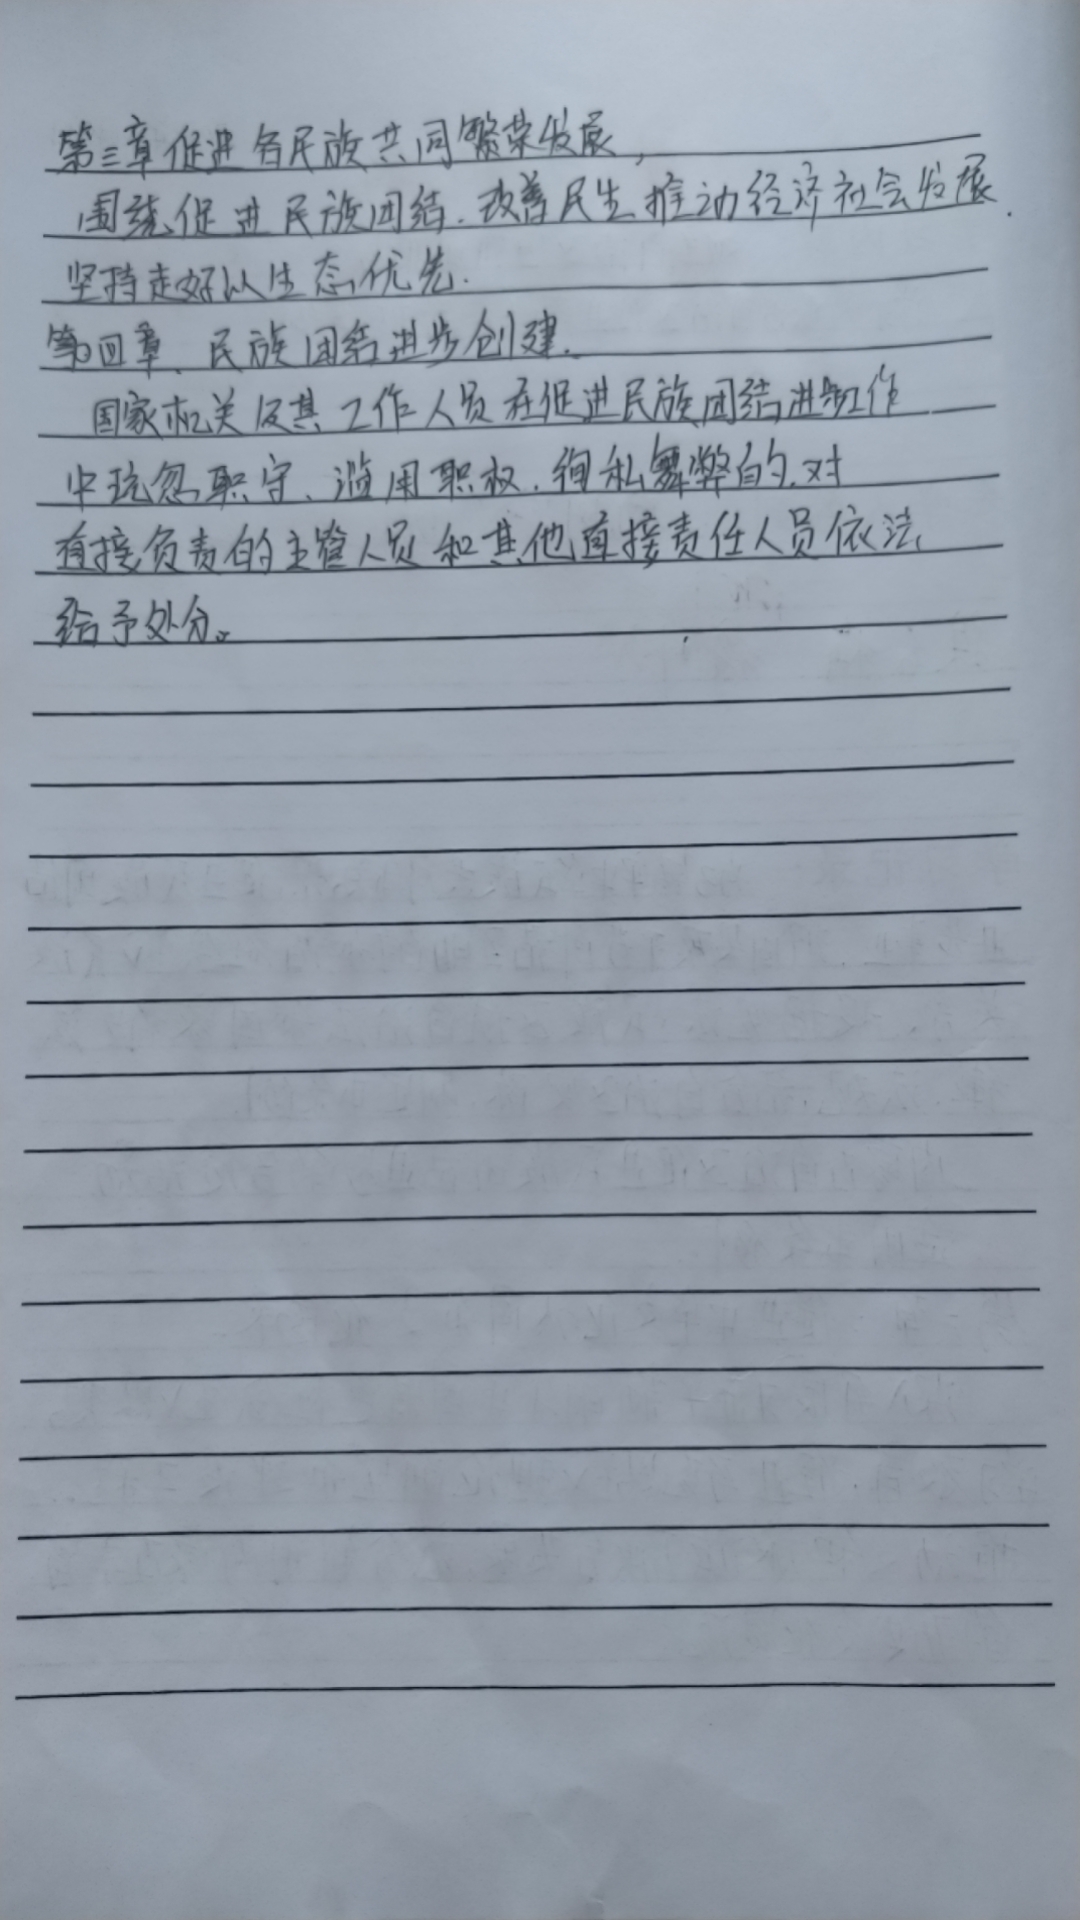 第三章促进各民族共同繁荣发展，
围绕促进民族团结.改善民生推动经济社会发展.
坚持走好以生态优先.
第四章、民族团结进步创建.
国家机关及其工作人员在促进民族团结进步工作
中玩忽职守、滥用职权.徇私舞弊的.对
直接负责的主管人员和其他直接责任人员依法
给予处分。